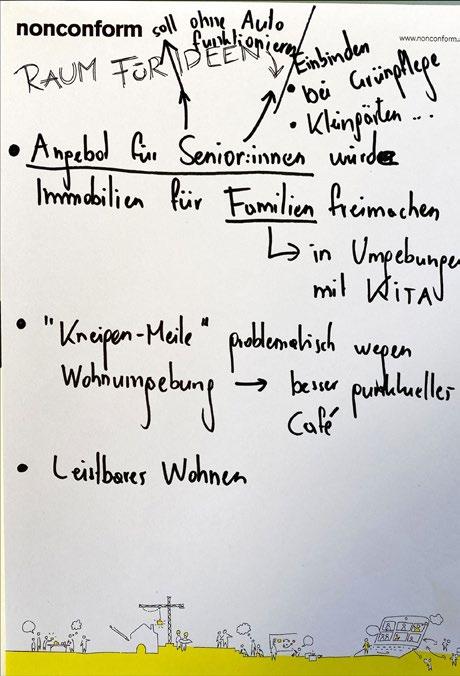 nonconform
www.nonconform.
RAUM FÜR IDEEN
soll ohne Auto
funktionieren
Einbinden
• bei Grünpflege
• Kleingärten ...
• Angebot für Senior:innen würde
Immobilien für Familien freimachen
↳ in Umgebungen
mit KITA
• "Kneipen-Meile" problematisch wegen
Wohnumgebung → besser punktuelles
Café
• Leistbares Wohnen